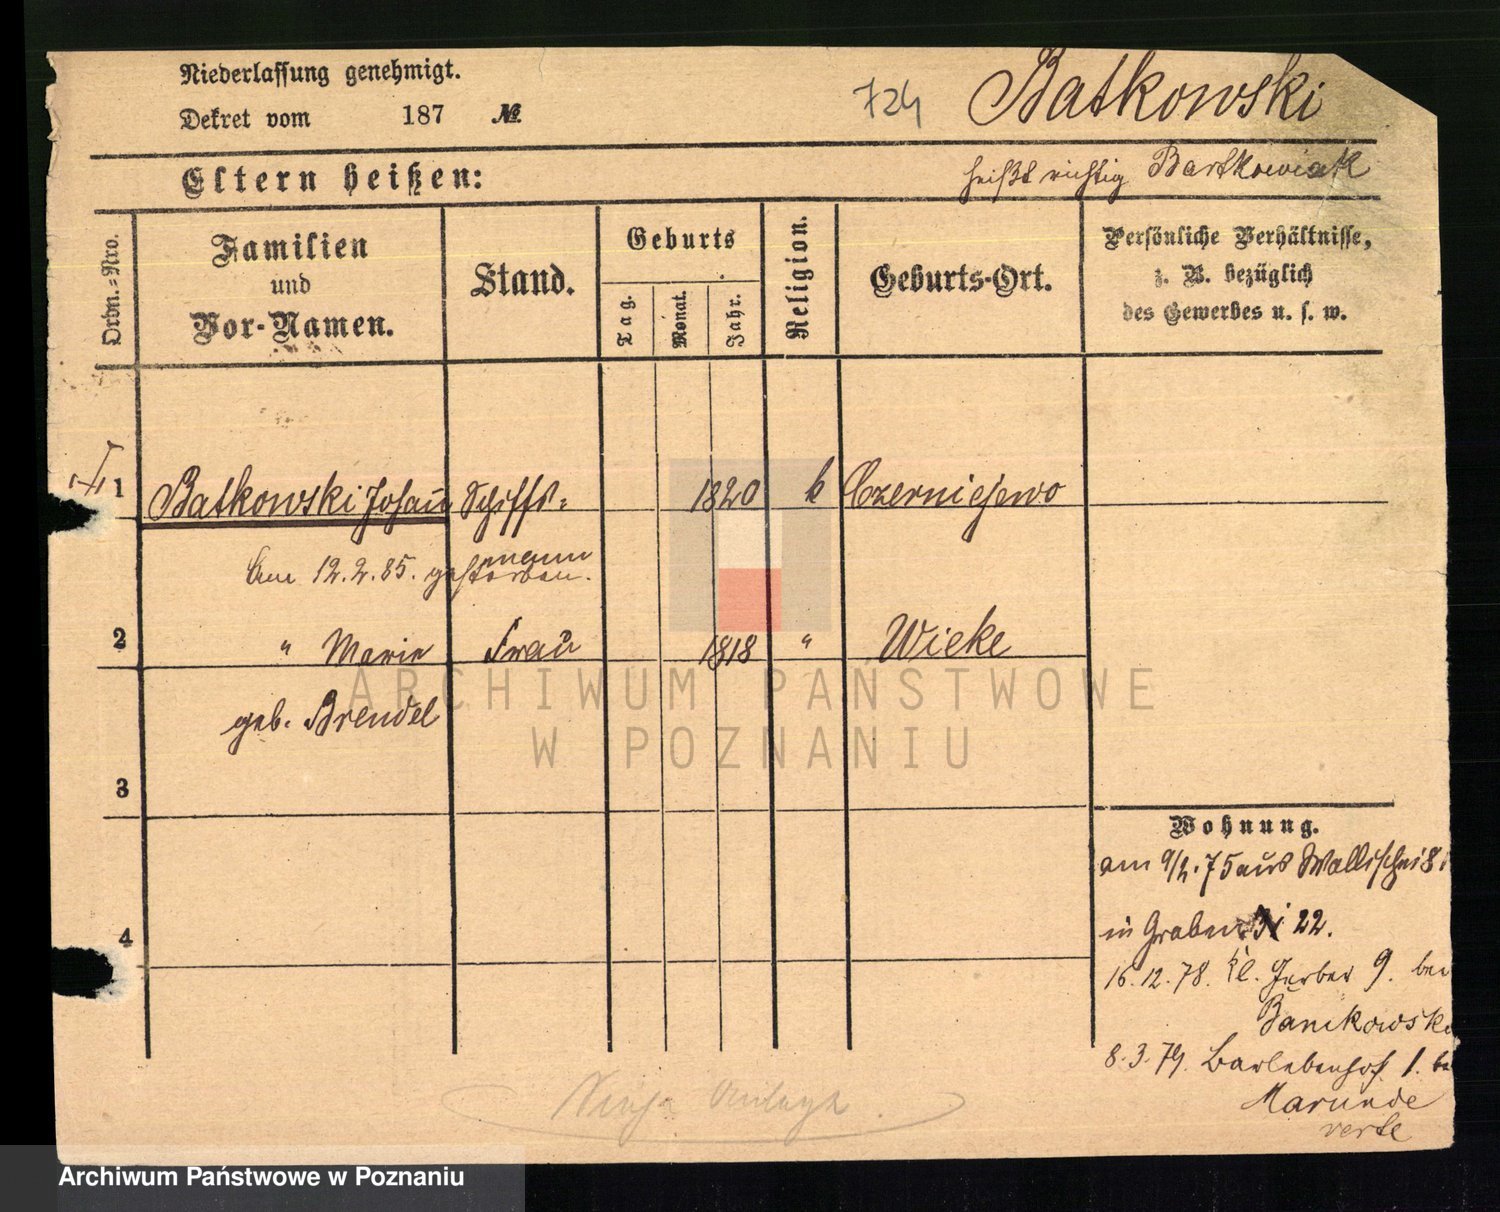 Niederlassung genehmigt.
Dekret vom 187 №
724 Batkowski
Eltern heißen:
heißt richtig Bartkowiak
Ordn.-Nro.
Familien und Vor-Namen.
Stand.
Geburts
Tag.
Monat.
Jahr.
Religion.
Geburts-Ort.
Persönliche Verhältnisse,
z. B. bezüglich
des Gewerbes u. s. w.
1 Batkowski Johann Schiffs= 1820 k Czerniejewo
mann
Am 12.2.85. gestorben.
2 " Marie Frau 1818 " Wieke
geb. Brendel
3
4
Wohnung.
am 9/2.75 aus Wallischei 8
in Graben 22.
16.12.78. kl. Gerber 9. bei
Banikowski
8.3.79. Barlebenhof 1. be
Marunde
verte
ARCHIWUM PAŃSTWOWE
W POZNANIU
Archiwum Państwowe w Poznaniu